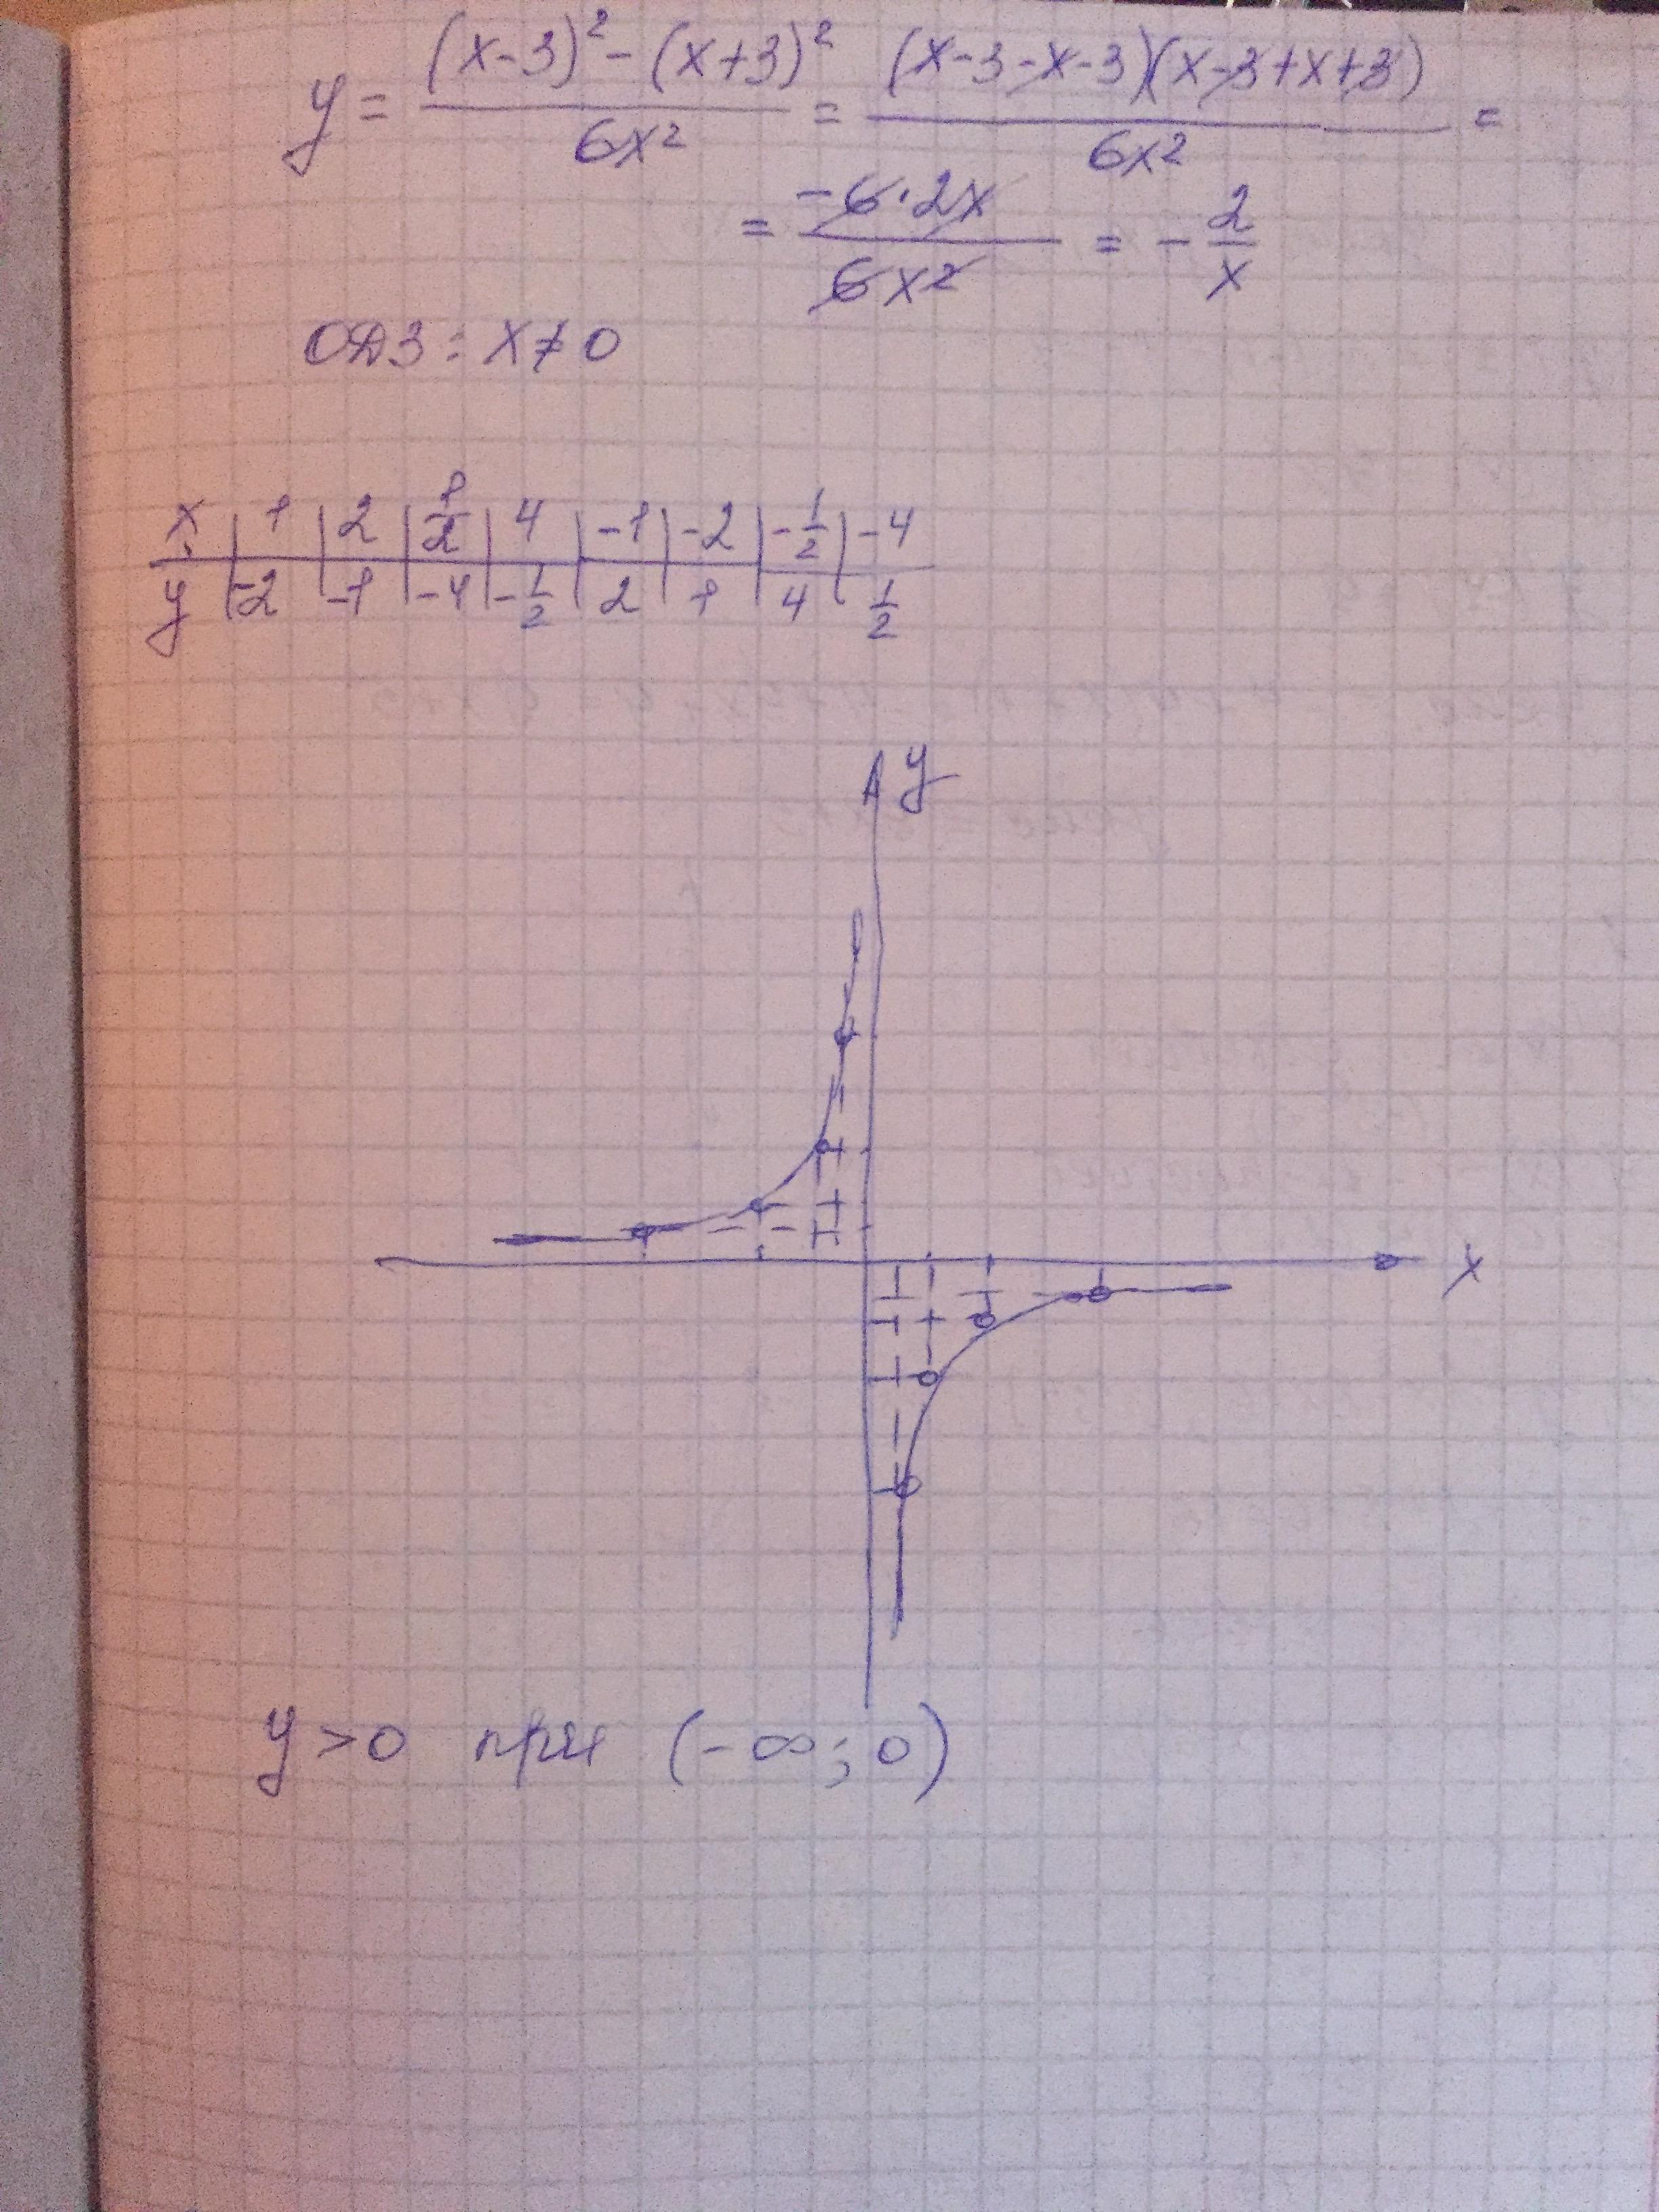 y = ((x-3)² - (x+3)²)/(6x²) = ((x-3-x-3)(x-3+x+3))/(6x²) =
= (-6·2x)/(6x²) = -2/x
ОДЗ: x≠0
x | 1 | 2 | 1/2 | 4 | -1 | -2 | -1/2 | -4
y | -2 | -1 | -4 | -1/2 | 2 | 1 | 4 | 1/2
y
x
y>0 при (-∞; 0)